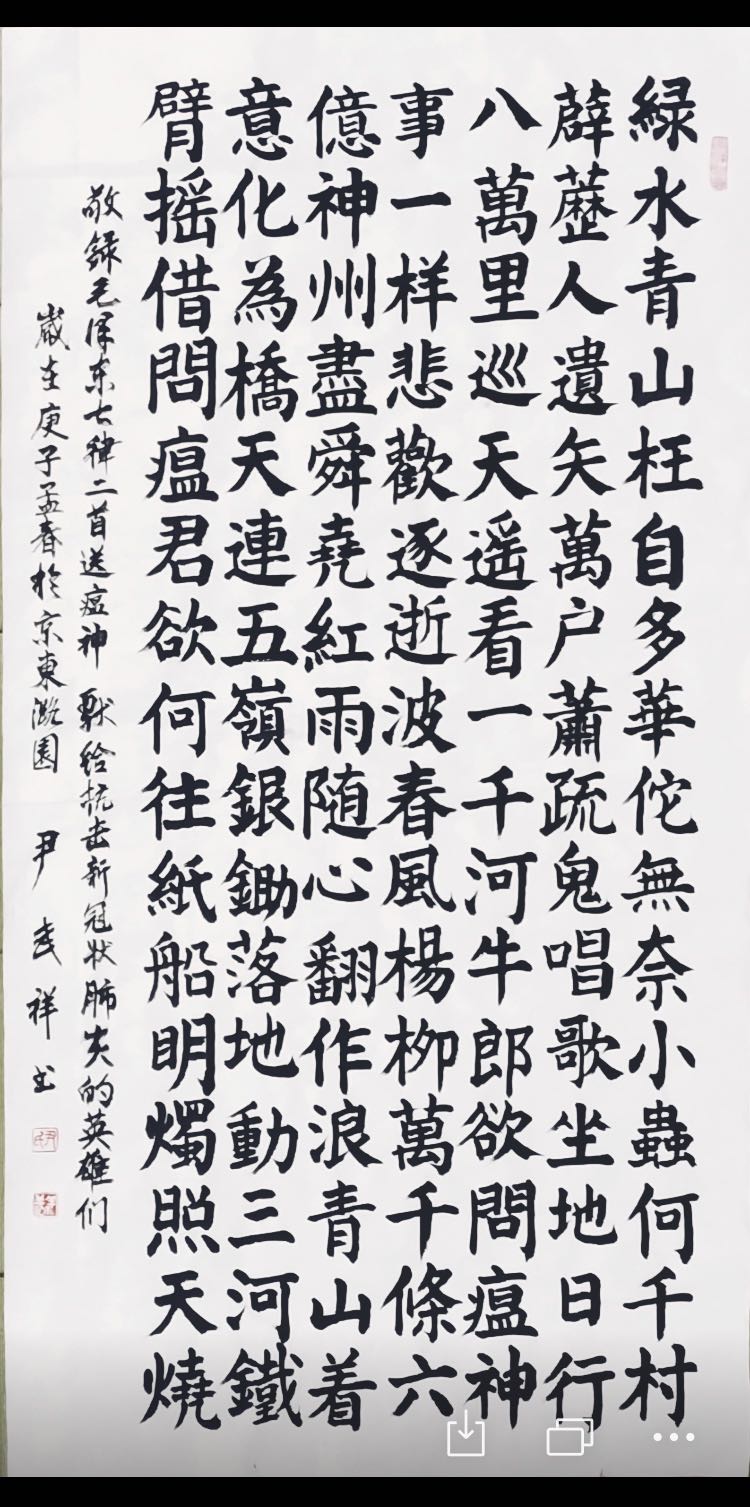 緑水青山枉自多華佗無奈小蟲何千村
薜藶人遺矢萬户蕭疏鬼唱歌坐地日行
八萬里巡天遥看一千河牛郎欲問瘟神
事一样悲歡逐逝波春風楊柳萬千條六
億神州盡舜堯紅雨随心翻作浪青山着
意化為橋天連五嶺銀鋤落地動三河鐵
臂摇借問瘟君欲何往紙船明燭照天燒
敬錄毛泽东七律二首送瘟神 献给抗击新冠状肺炎的英雄们
歲在庚子孟春於京東潞園 尹 武 祥 书